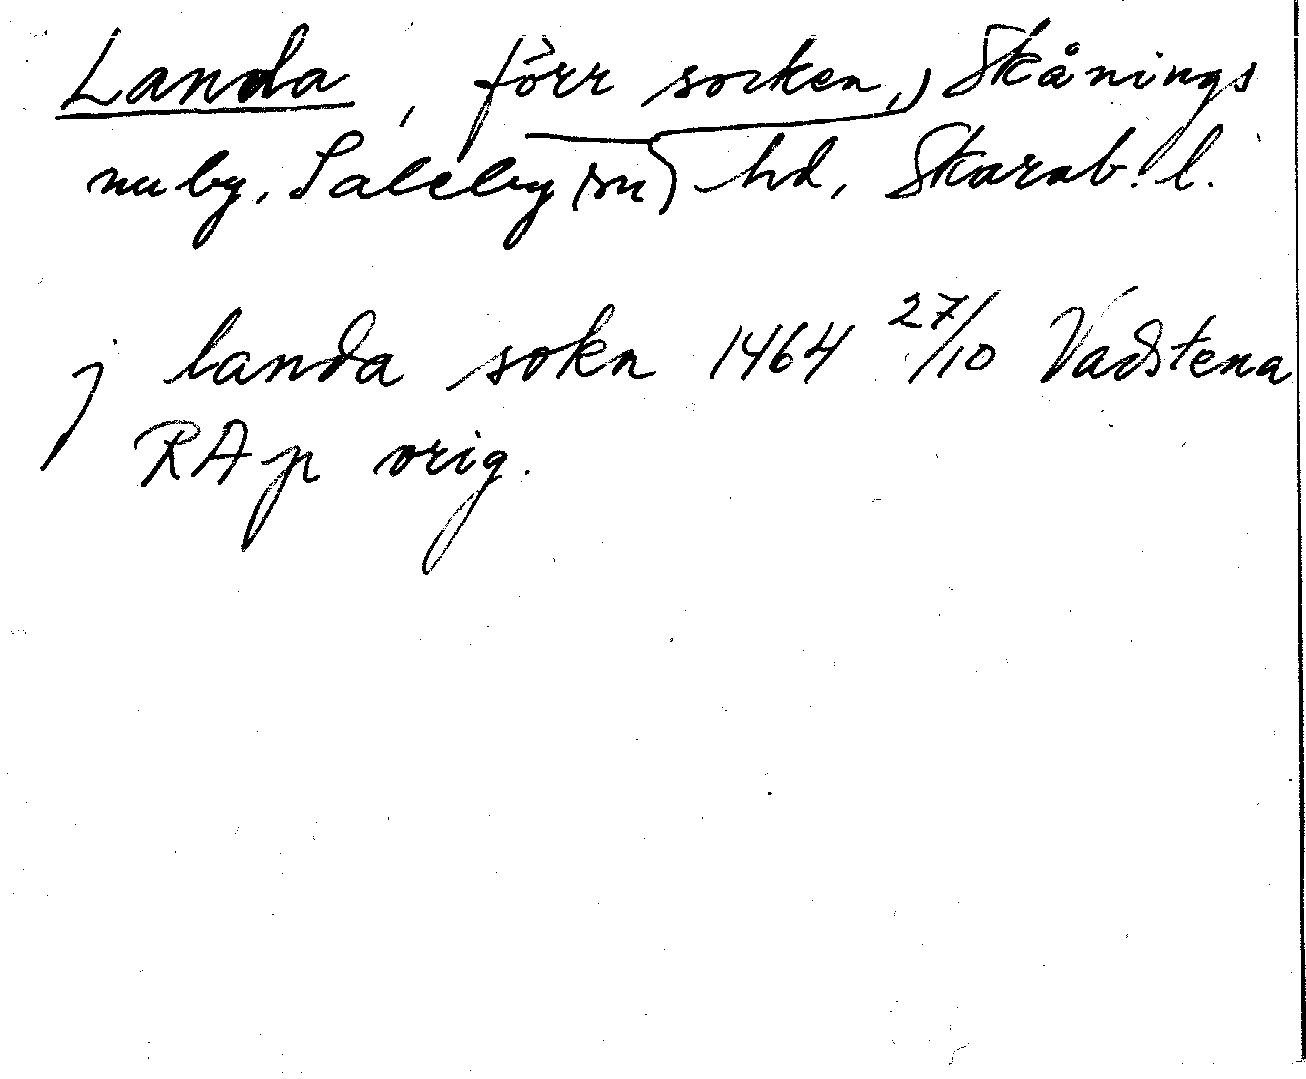 Landa, förr socken, Skånings
nu by, Saleby (sn) hd, Skarab. l.
j landa sokn 1464 27/10 Vadstena
RAp orig.